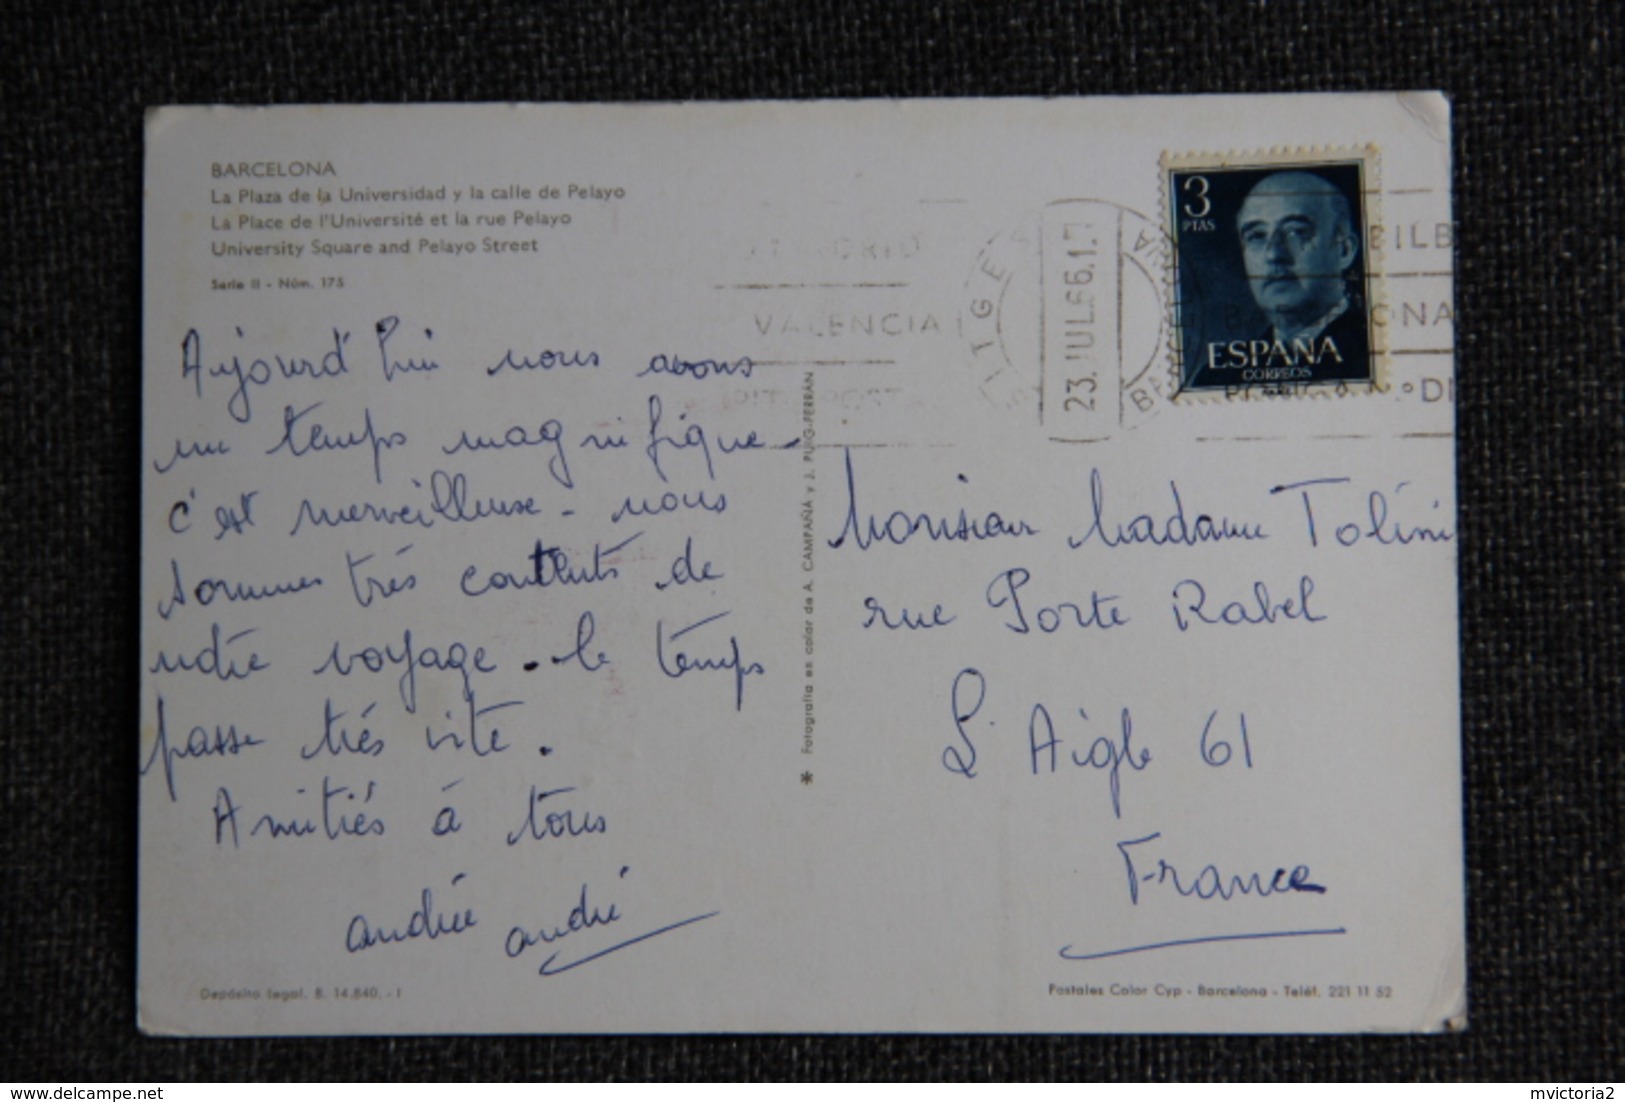 BARCELONA
La Plaza de la Universidad y la calle de Pelayo
La Place de l'Université et la rue Pelayo
University Square and Pelayo Street
Serie II - Núm. 175
Aujourd'hui nous avons
un temps magnifique -
c'est merveilleuse - nous
sommes très contents de
notre voyage - le temps
passe très vite.
Amitiés à tous
andrée andré
Depósito legal. B. 14.840. - I
* Fotografía es color de A. CAMPAÑÁ y J. PUIG-FERRÁN
VALENCIA
SITGES
23.JUL.66.17
3
PTAS
ESPAÑA
CORREOS
BILB
ONA
Monsieur Madame Tolini
rue Porte Rabel
L'Aigle 61
France
Postales Color Cyp - Barcelona - Teléf. 221 11 52
mvictoria2